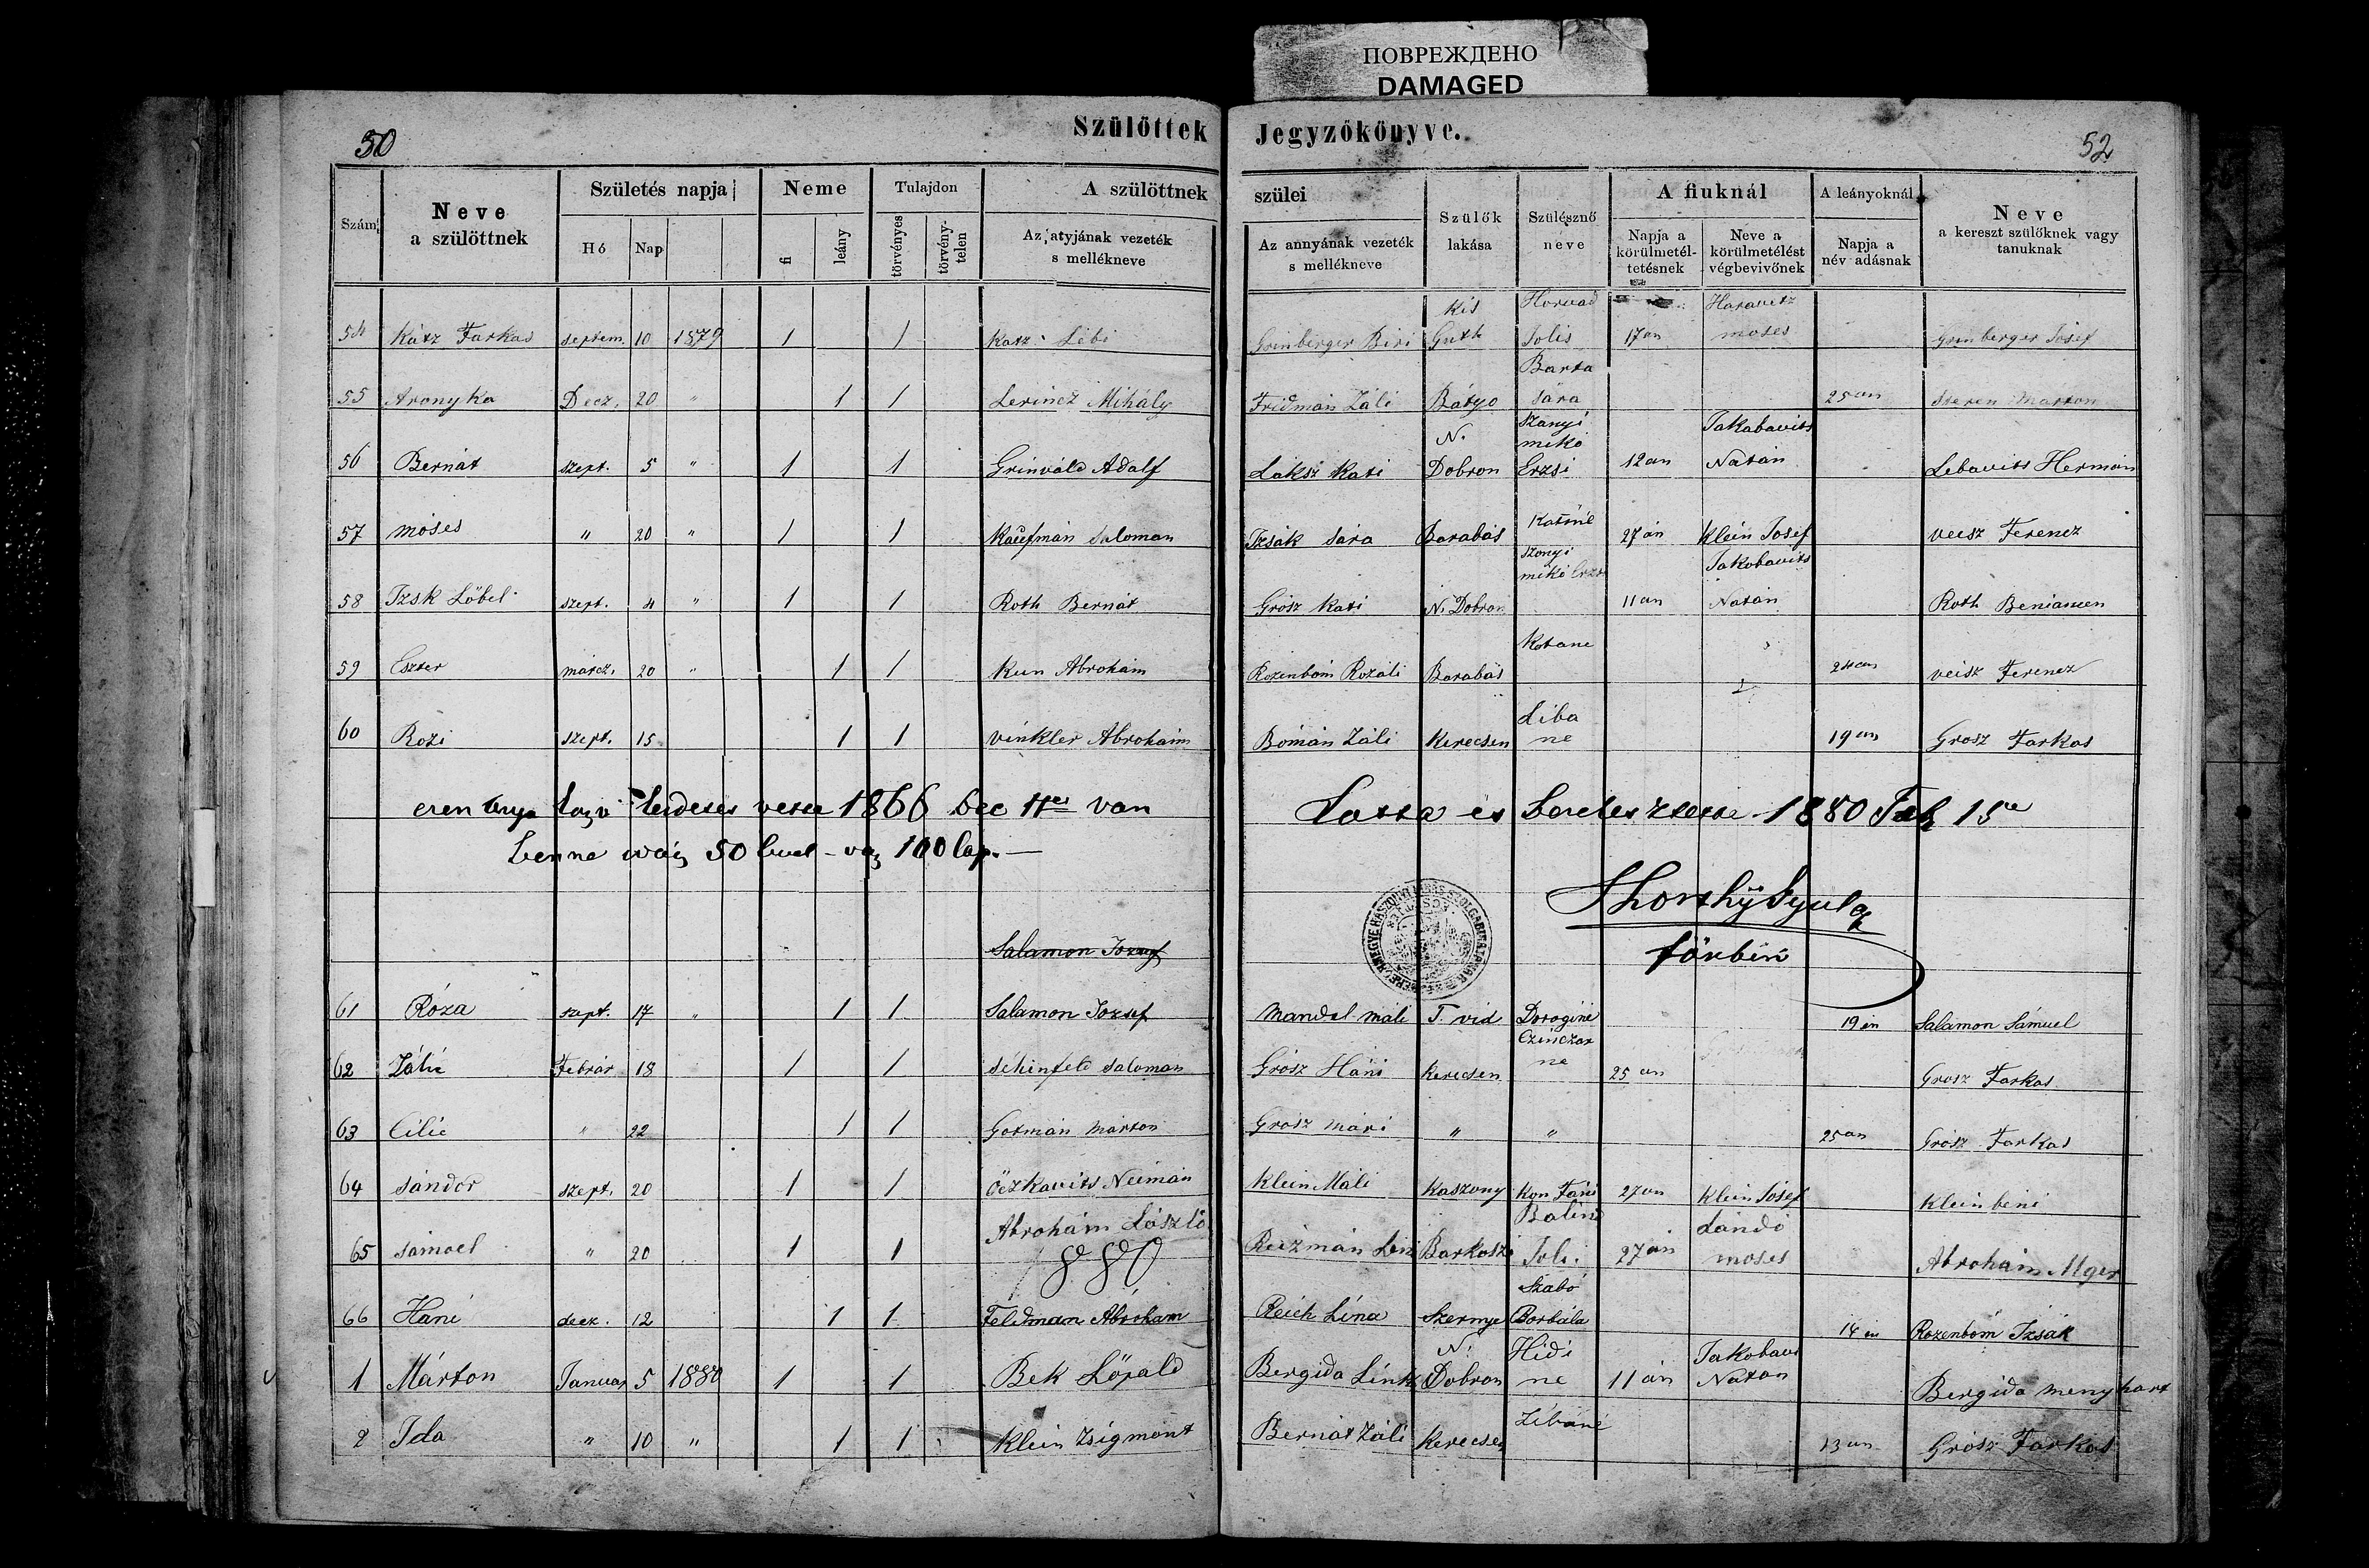 ПОВРЕЖДЕНО
DAMAGED
50 Szülöttek Jegyzőkönyve. 52
Szám Neve a szülöttnek Születés napja Hó Nap Neme fi leány Tulajdon törvényes törvénytelen A szülöttnek szülei Az atyjának vezeték s mellékneve Az annyának vezeték s mellékneve Szülők lakása Szülésznő neve A fiuknál Napja a körülmetéltetésnek Neve a körülmetélést végbevivőnek A leányoknál Napja a név adásnak Neve a kereszt szülőknek vagy tanuknak
54 Kátz Farkas septem. 10 1879 1 1 Katz Lébi Grinberger Biri Kis Guth Horvad Jolis 17 an Haravitz moses Grinberger Josef
55 Aronyka Decz. 20 " 1 1 Lerincz Mihály Fridmán Záli Bátyo Barta sára 25 an Marton
56 Bernát szept. 5 " 1 1 Grinváld Adalf Láksz Kati N. Dobron Szanyi mikó Erzsi 12 an Jakabavits Natán Lebavits Hermán
57 móses " 20 " 1 1 Kaufmán Saloman Izsák sára Barabás Katóné 27 án Klein Josef veisz Ferencz
58 Izsk Löbel szept. 4 " 1 1 Roth Bernát Grósz Kati N. Dobron szonyi mikó 11 an Jakobavits Natán Roth
59 Eszter márcz. 20 " 1 1 Kun Abrohám Rozenbóm Rozáli Barabás Kotane 24 an veisz Ferencz
60 Rozi szept. 15 1 1 vinkler Abrohám Bómán Záli Kerecsen Liba ne 19 an Grosz Farkas
1866 van
benne 50 100 lap.
és 1880 Feb 15
Gyula
Salamon Jozsef
61 Róza szept. 17 " 1 1 Salamon Jozsef Mandel máli T. vid Doroginé 19 én Salamon Sámuel
62 Záli Febrár 18 1 1 séhinfeld saloman Grósz Háni Kerecsen ne 25 an Grosz Farkas
63 Cili " 22 1 1 Gotmán márton Grósz mári " " 25 an Grósz Farkas
64 sándor szept. 20 1 1 Neimán Klein Máli Kaszony Kon Fáni 27 an Klein Jósef Klein beni
65 sámoel " 20 1 1 Abrohám László Reizmán Barkoszi Balind Joli 27 án Lándó moses Abrohám
880
66 Háni decz. 12 1 1 Feldman Abroham Reich Lina Szernye Szabó Borbála 14 én Rozenbóm Izsák
1 Márton Januar 5 1880 1 1 Bek Löpald Bergida N. Dobron Hidi ne 11 án Jakobavi Natán Bergida menyhart
2 Ida " 10 " 1 1 Klein Zsigmont Bernát Záli Kerecsen Libáné 13 an Grósz Farkas